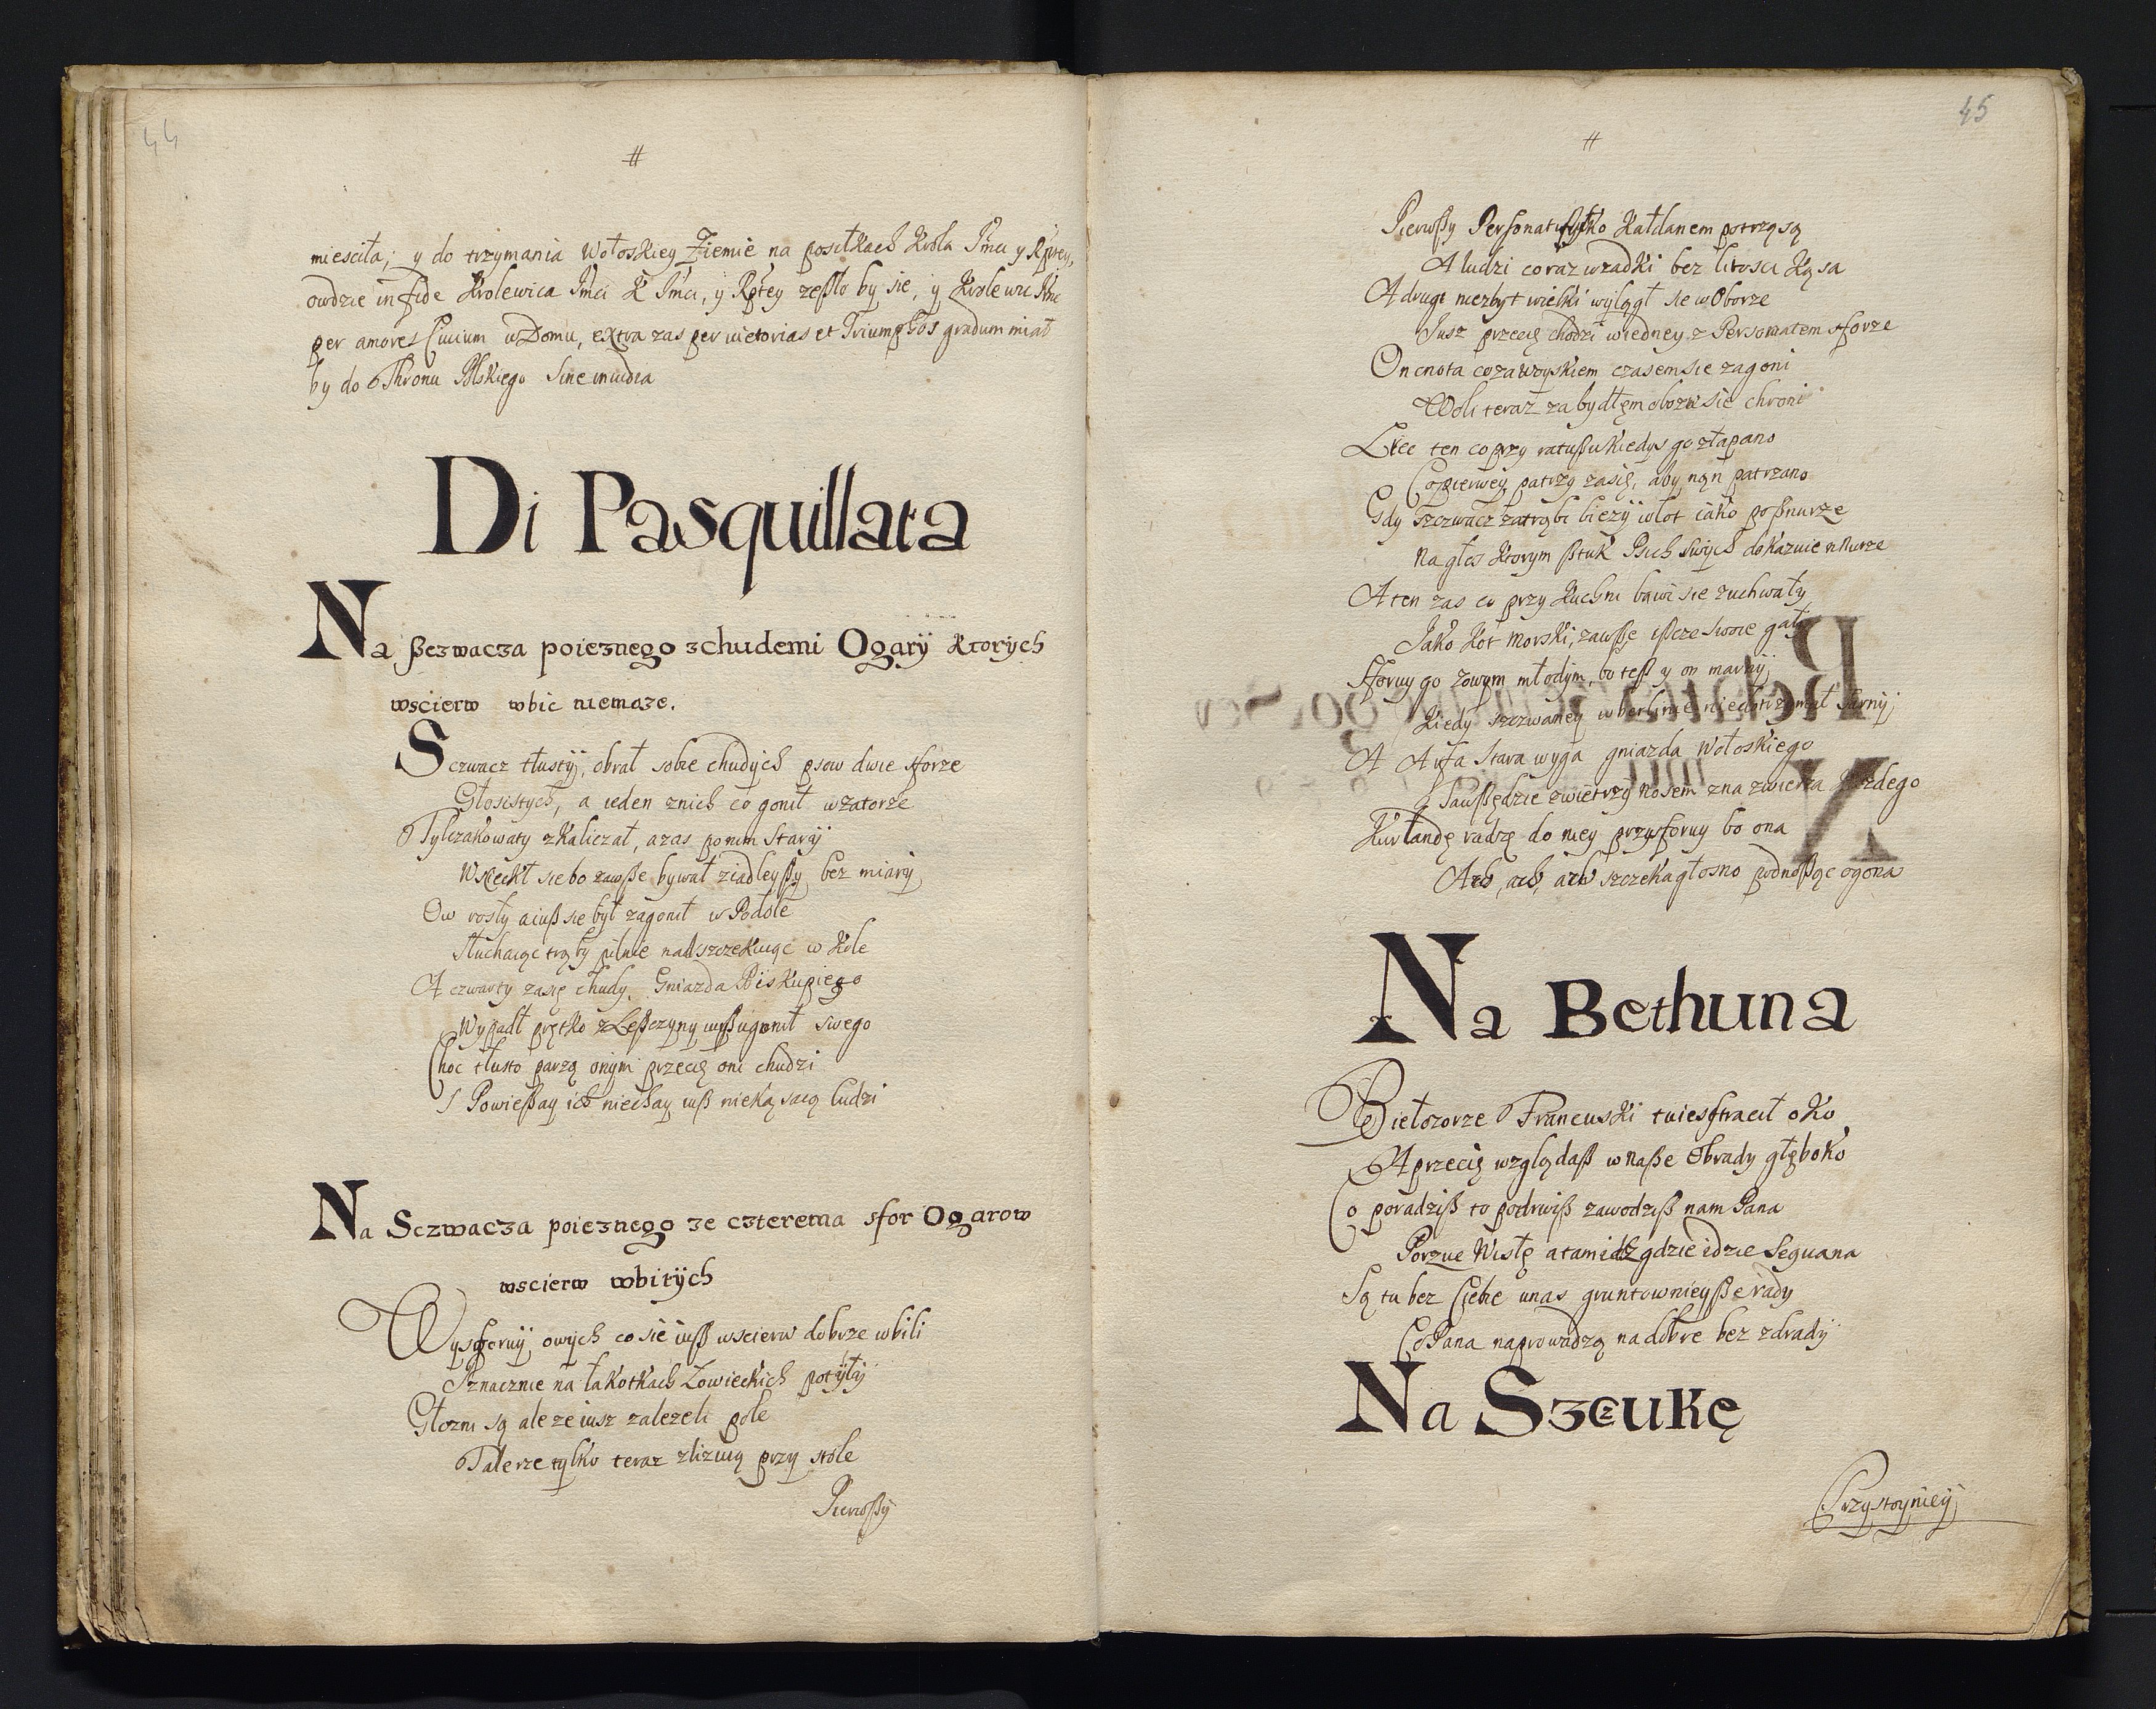 44
#
miescila; y do trzymania Wołoskiey Ziemie na posiłkach Krola Jmci y Rptey,
owdzie in fide Krolewica Jmci K Jmci, y Rptey zeszło by sie, y Krolewic Jmc
per amores Civium w Domu, extra zas per victorias et Triumphos gradum miał
by do Thronu Polskiego Sine invidia
Di Pasquillata
Na ßczwacza poieznego z chudemi Ogary ktorych
wscierw wbic niemoze.
Sczwacz tłusty, obrał sobie chudych psow dwie sforze
Głosistych, a ieden znich co gonił wzatorze
Tylczakowaty zkaliczał, azas ponim Stary
Wsciekł sie bo zawße bywał ziadleyßy bez miary
Ow rosły aiuß sie był zagonił w Podole
Słuchaiąc trąby pilnie nadszczekuiąc w Kole
A czwarty zasię chudy, Gniazda Biskupiego
Wypadł prętko zLeßczyny iußugonił swego
Choc tłusto parzą onym przecię oni chudzi
Powießay ich niechay iuß niekąsaią ludzi
Na Sczwacza poieznego ze czterema sfor Ogarow
wscierw wbitych
Wysforuy owych co sie iuß wscierw dobrze wbili
Znacznie na łakotkach Łowieckich potyły
Głozni są ale ze iusz zalezeli pole
Talerze tylko teraz zlizuią przy stole
Pierwßy
45
#
Pierwßy Personat tylko Kałdanem potrząsą
A ludzi coraz wzadki bez litosci Kąsa
A drugi niezbyt wielki wylągł sie w Oborze
Jusz przecię chodzi wiedney z Personatem sforze
On cnota coza woyskiem czasem sie zagoni
Woli teraz za bydłęm obozu sie chroni
Lecz ten co przy ratußu kiedys go złapano
Co pierwey patrzy zasię, aby nąn patrzano
Gdy Szczwacz zatrąbi biezy wlot iako poßnurze
Na głos Ktorym ßtuk Psich Swych dokazuie
A ten zas co przy Kuchni bawi sie zuchwały
Jako Kot Morski, zawße ißcze Swoie gały
Sforuy go zowym młodym, bo teß y on marny
Kiedy szczwaney w berlinie niedotrzymał Sarny
A Stara wyga gniazda Wołoskiego
Saußędzie zwietrzy Nosem zna zwierza Kozdego
Kurlandę radzę do niey przysforuy bo ona
Ach, ach, ach szczeka głosno podnoßąc ogona
Na Bethuna
Białozorze Francuski tuiesstracił oko
A przecię wzglądaß w naße Obrady głęboko
Co poradziß to podrwiß zawodziß nam Pana
Porzuc Wisłę a tam idz gdzie idzie Sequana
Są tu bez Ciebie unas gruntownieyße rady
Co Pana naprowadzą na dobre bez zdrady
Na Szczukę
Przystoyniey